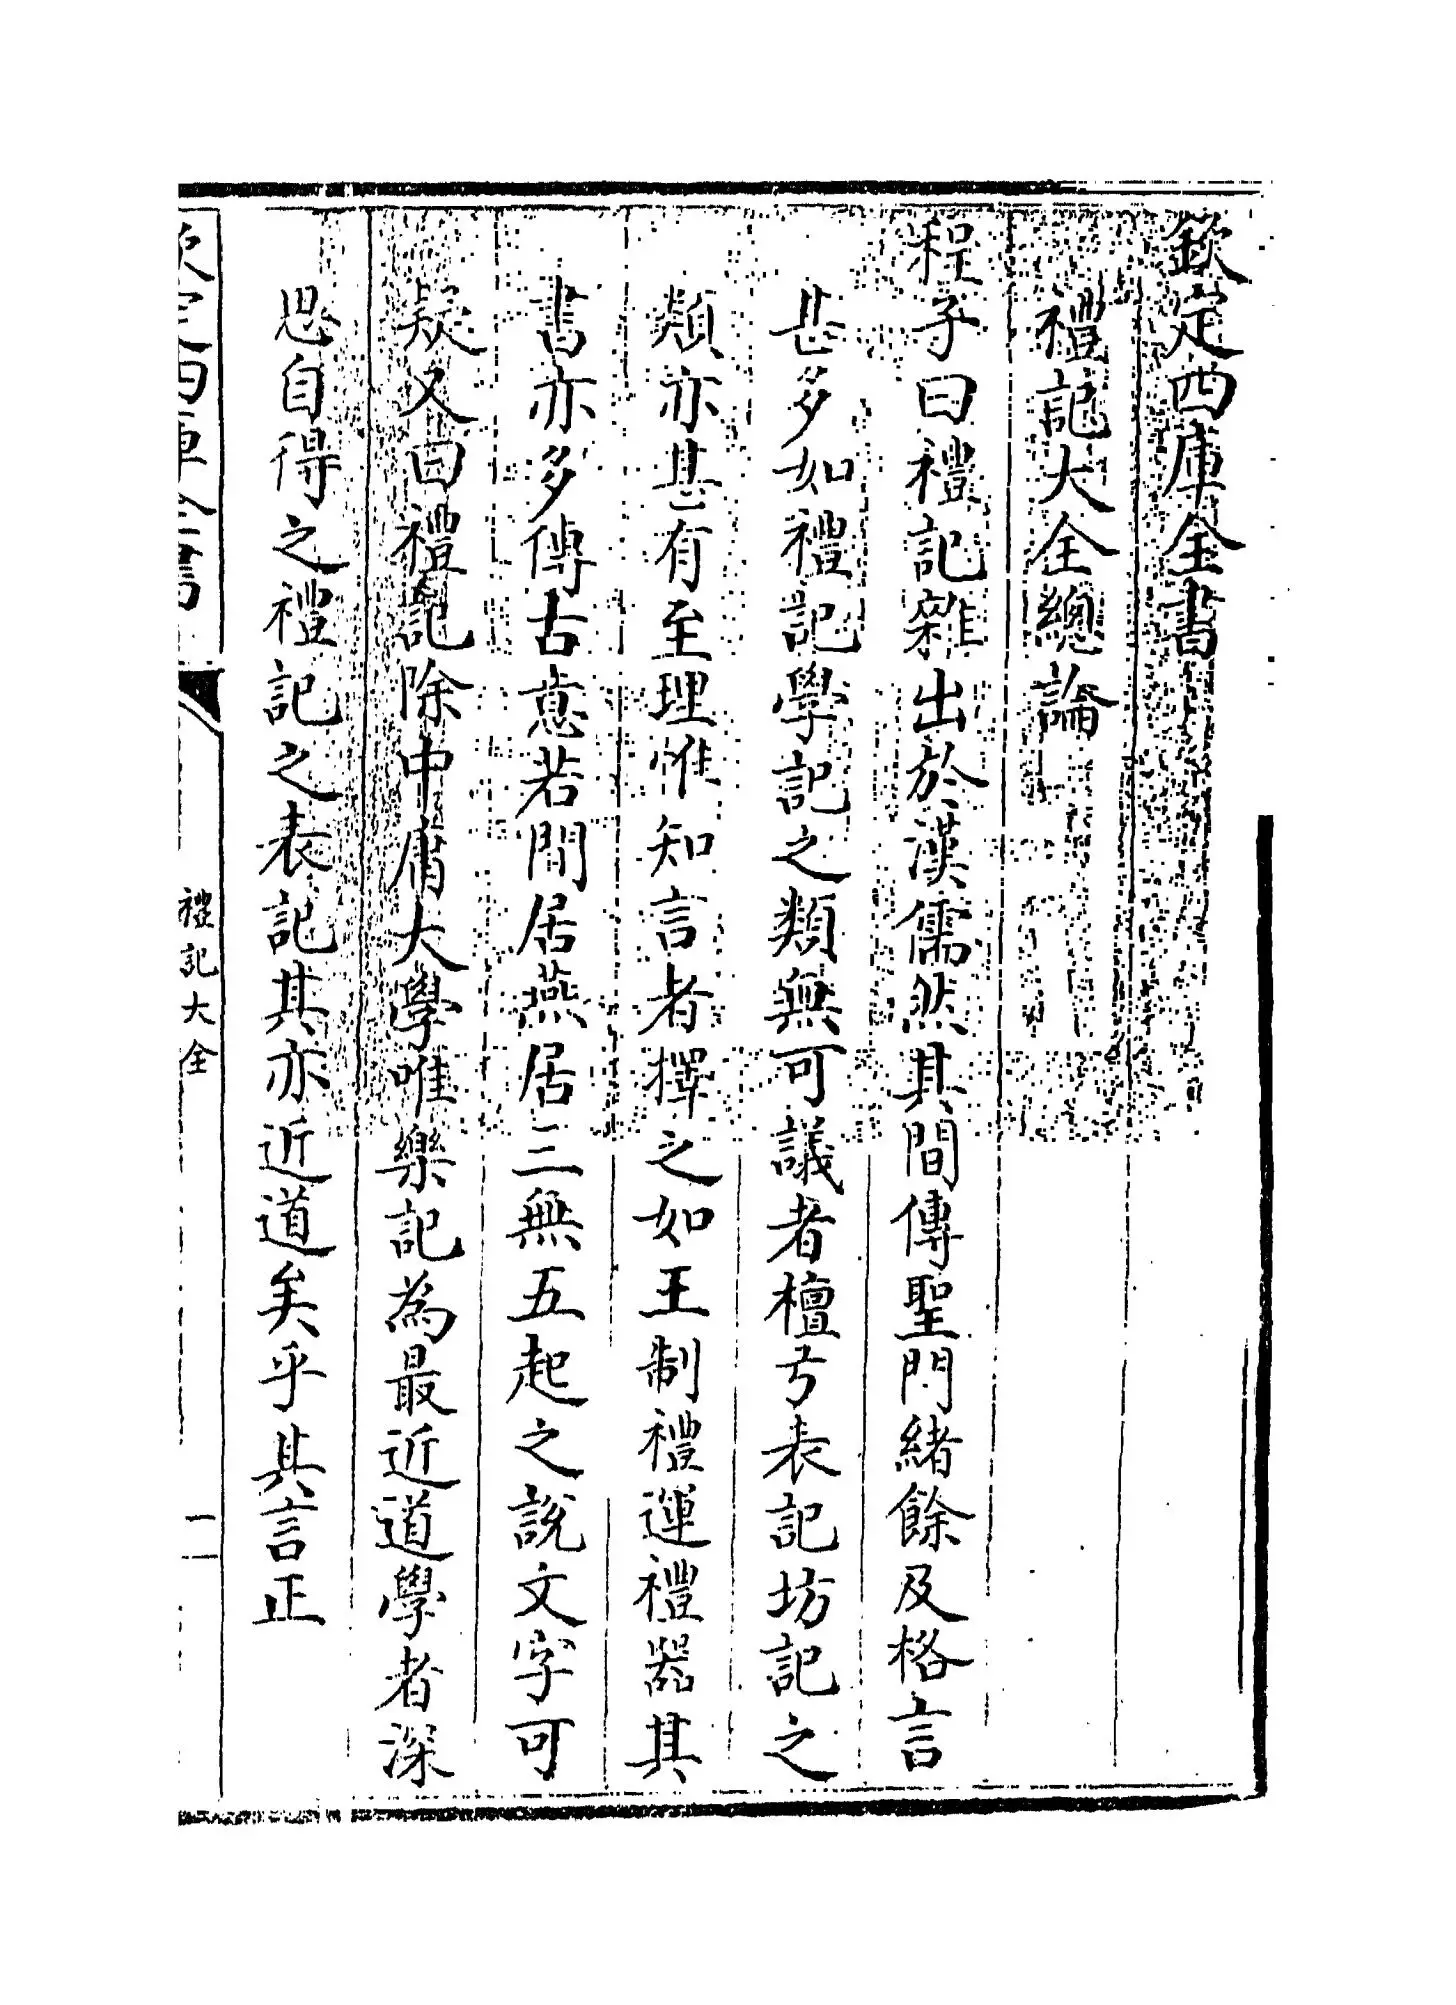 欽定四庫全書
禮記大全總論
程子曰禮記雜出於漢儒然其間傳聖門緒餘及格言
甚多如禮記學記之類無可議者檀弓表記坊記之
類亦甚有至理惟知言者擇之如王制禮運禮器其
書亦多傳古意若間居燕居三無五起之說文字可
疑又曰禮記除中庸大學唯樂記為最近道學者深
思自得之禮記之表記其亦近道矣乎其言正
欽定四庫全書
禮記大全
一